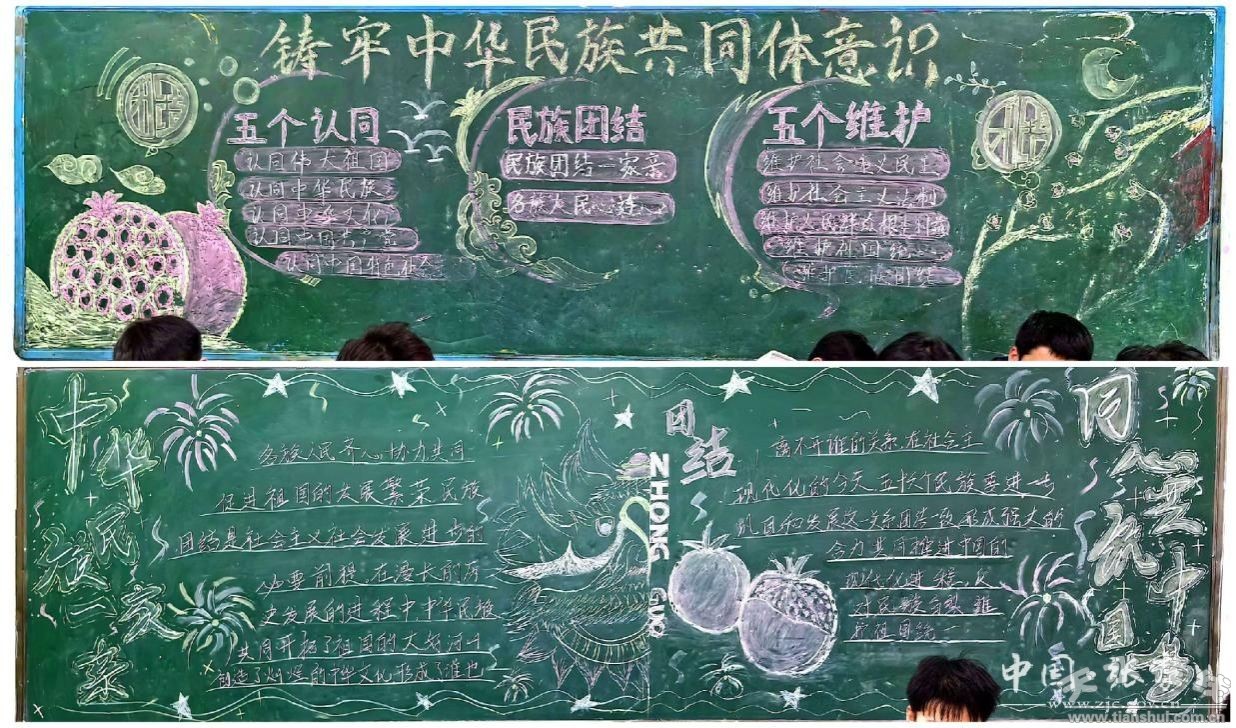 铸牢中华民族共同体意识
五个认同
认同伟大祖国
认同中华民族
认同中华文化
认同中国共产党
认同中国特色社会
民族团结
民族团结一家亲
各族人民心连心
五个维护
维护社会主义民主
维护社会主义法制
维护人民群众根本利益
维护祖国统一
维护民族团结
中华民族一家亲
各族人民齐心协力共同
促进祖国的发展繁荣民族
团结是社会主义社会发展进步的
必要前提，在漫长的历
史发展的进程中，中华民族
共同开拓了祖国的大好河山
创造了灿烂的中华文化形成了谁也
团结
ZHONG GUO
离不开谁的关系，在社会主
现代化的今天，五十六个民族要进一步
巩固和发展这一关系团结一致形成强大的
合力共同推进中国的
现代化进程，
对民族分裂维
护祖国统一
同筑中国梦
中国 张家川
www.zjc.gov.cn
www.tianshui.com.cn